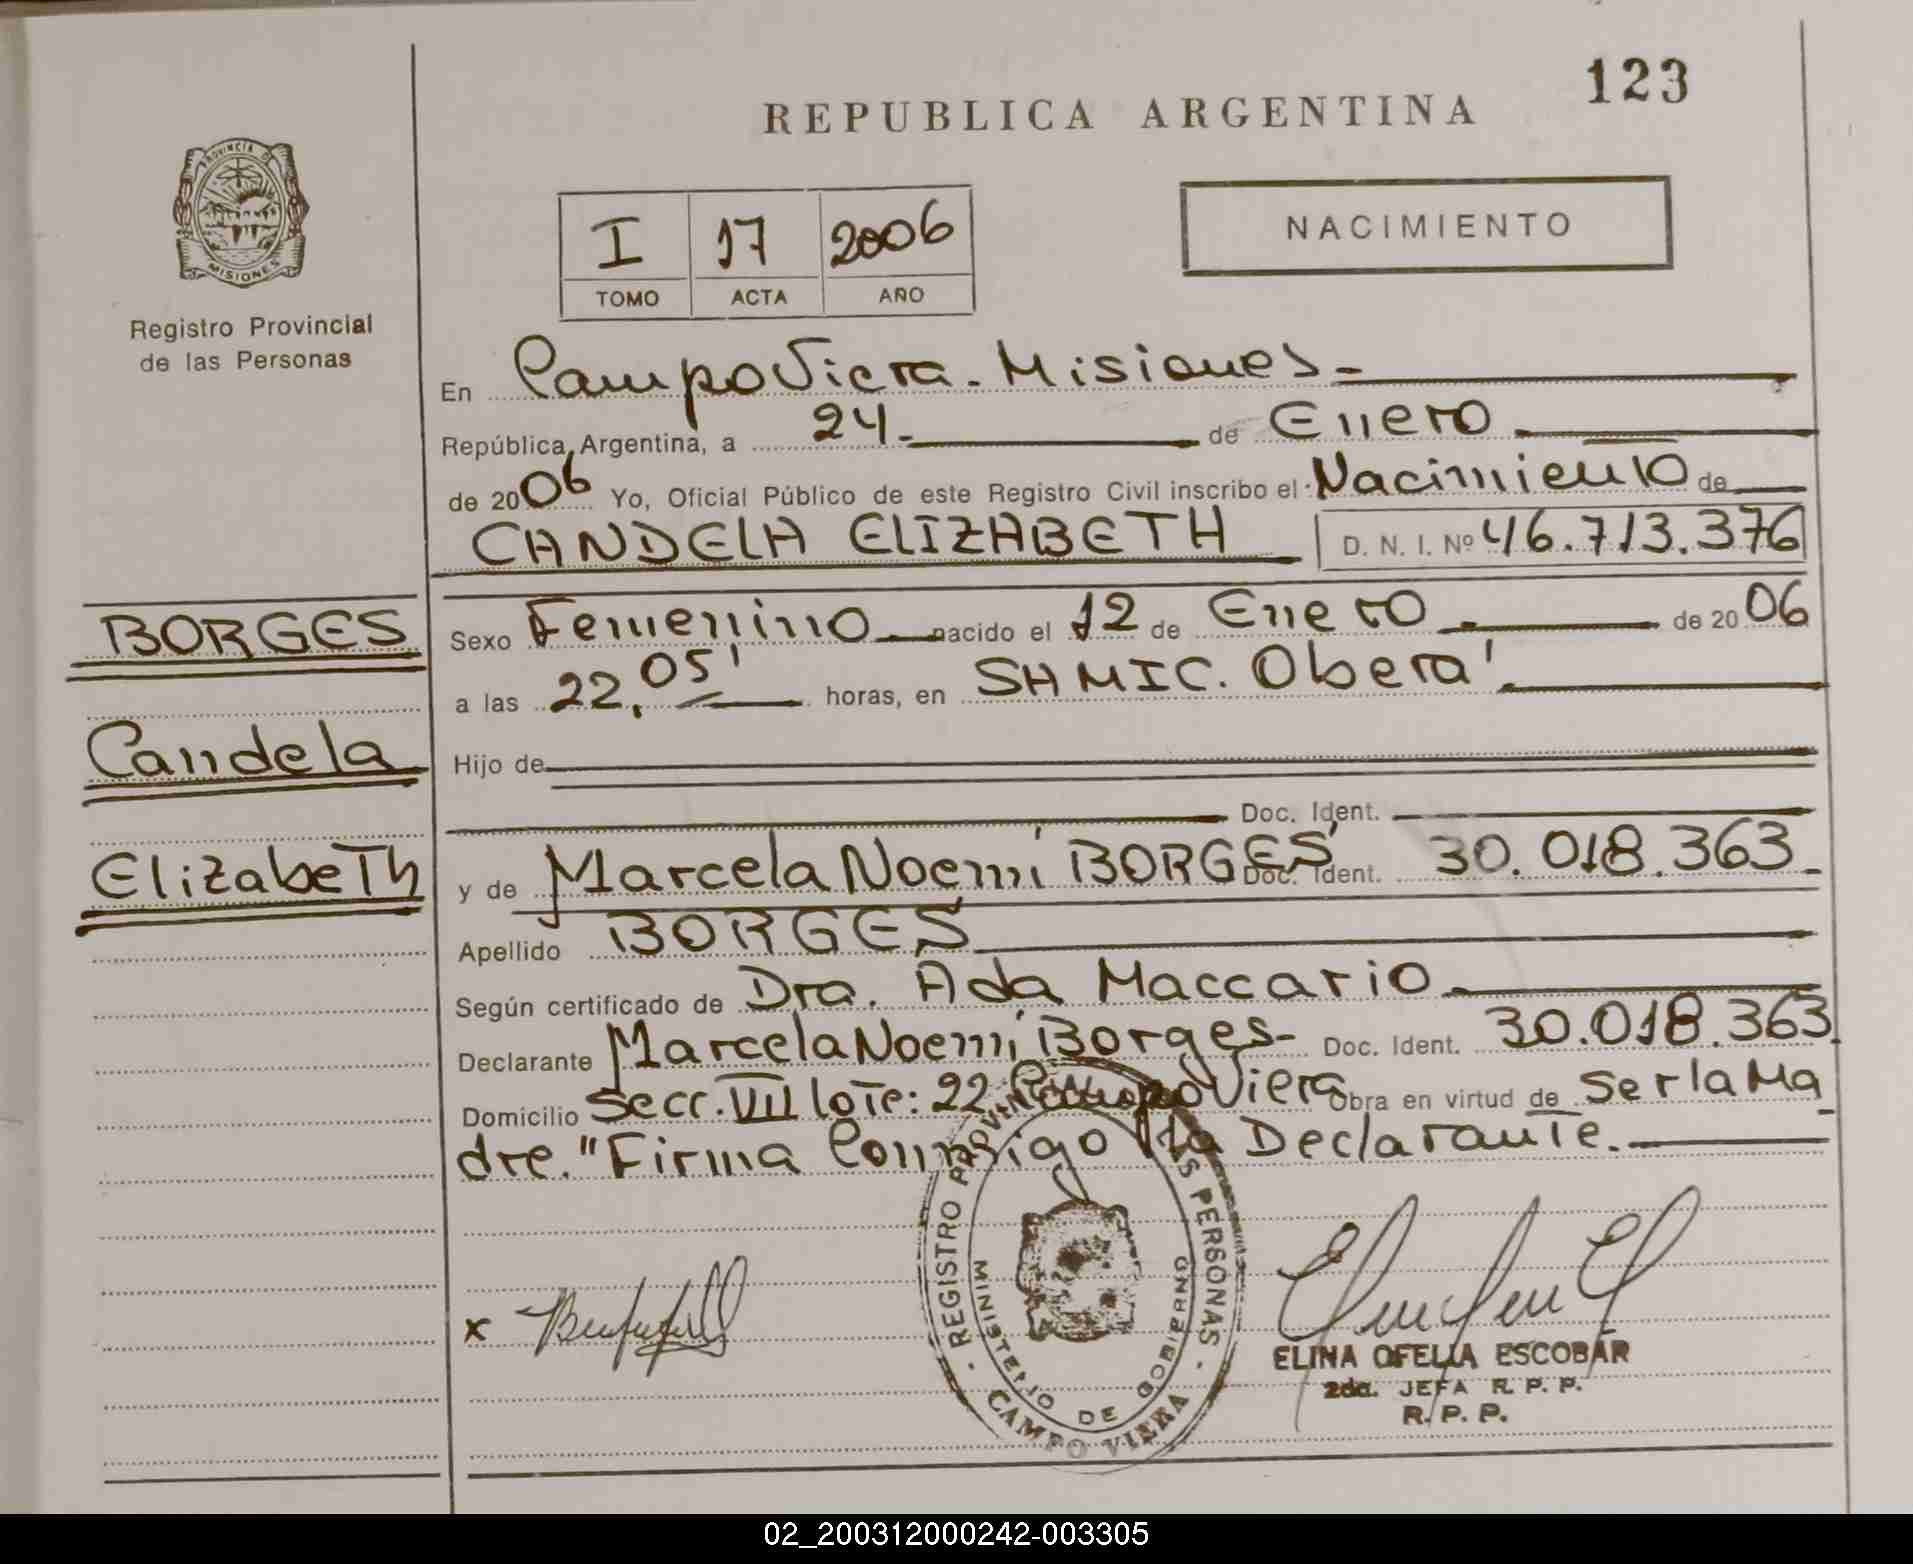 123
REPUBLICA ARGENTINA
PROVINCIA DE
MISIONES
Registro Provincial
de las Personas
NACIMIENTO
I 17 2006
TOMO ACTA AÑO
En Campo Viera - Misiones -
República Argentina, a 24 - de Enero
de 2006 Yo, Oficial Público de este Registro Civil inscribo el Nacimiento de
CANDELA ELIZABETH D. N. I. Nº 46.713.376
BORGES
Candela
Elizabeth
Sexo Femenino nacido el 12 de Enero - de 2006
a las 22,05' horas, en SAMIC. Oberá
Hijo de
Doc. Ident.
y de Marcela Noemí BORGES Doc. Ident. 30.018.363
Apellido BORGES
Según certificado de Dra. Ada Maccario
Declarante Marcela Noemí Borges - Doc. Ident. 30.018.363
Domicilio Secc. VII lote: 22 Campo Viera Obra en virtud de Ser la Ma
dre. "Firma Conmigo la Declarante.
x
REGISTRO PROVINCIAL DE LAS PERSONAS
MINISTERIO DE GOBIERNO
CAMPO VIERA
ELINA OFELIA ESCOBAR
2da. JEFA R. P. P.
R. P. P.
02_200312000242-003305